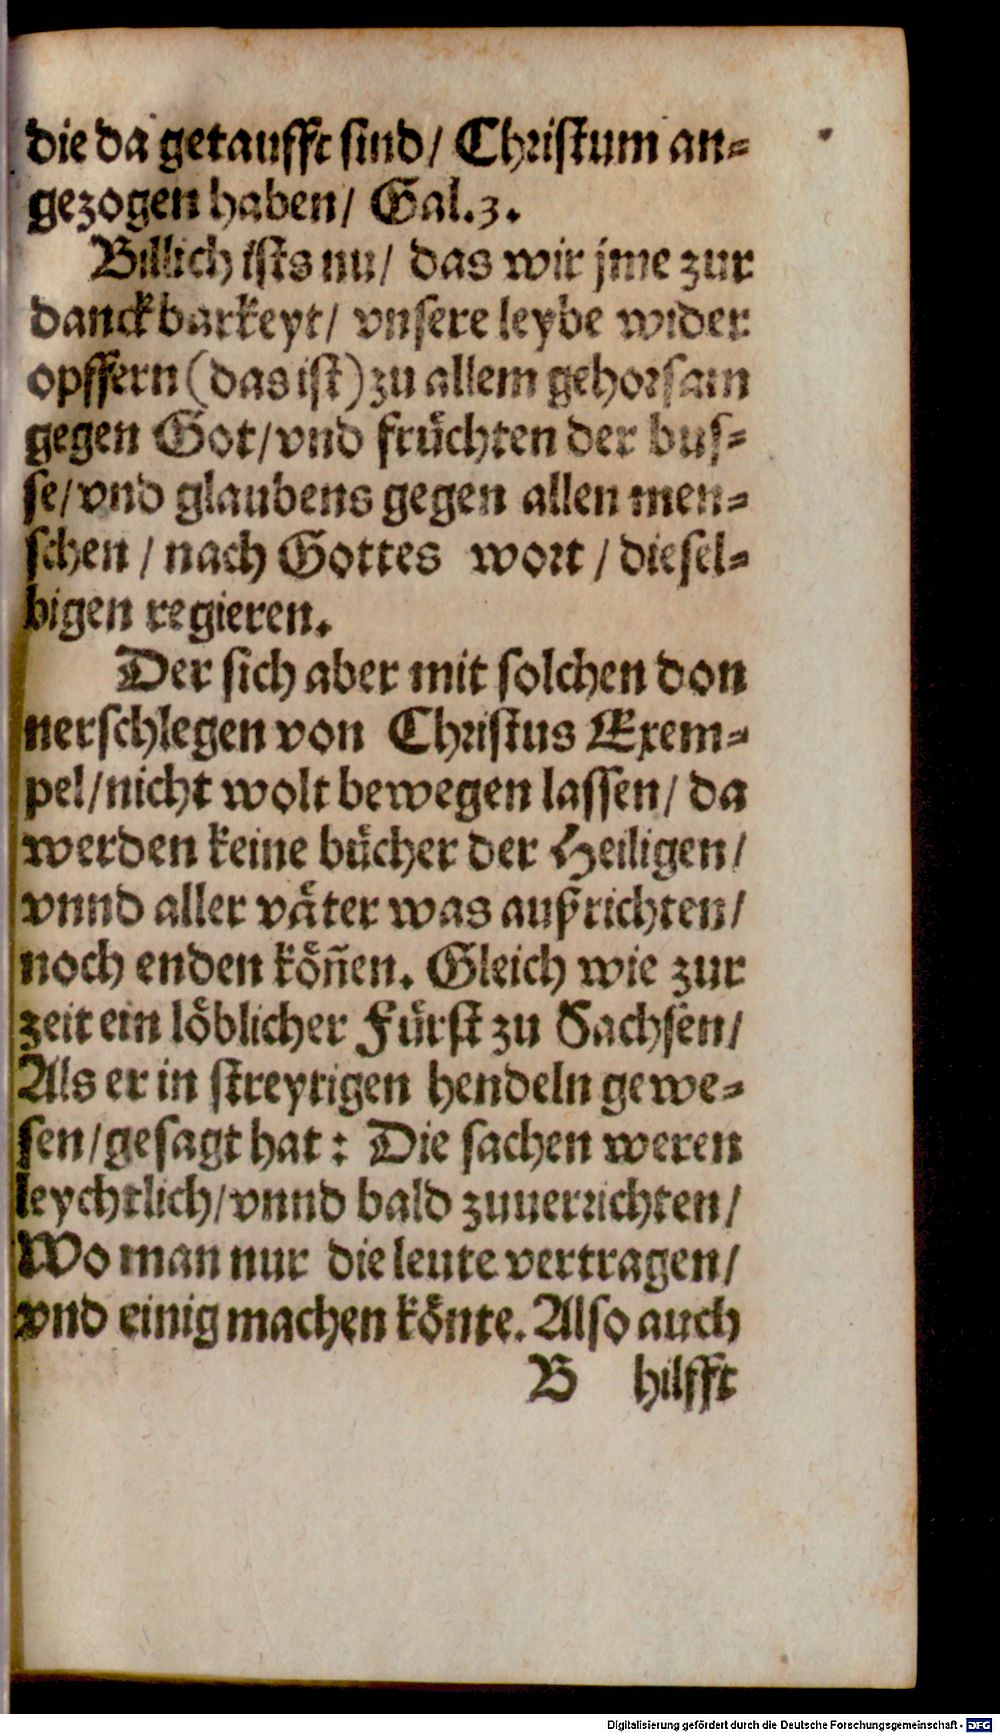 die da getaufft sind/ Christum an⸗
gezogen haben/ Gal.3.
Billich ists nu/ das wir jme zur
danckbarkeyt/ vnsere leybe wider
opffern (das ist) zu allem gehorsam
gegen Got/ vnd früchten der bus⸗
se/ vnd glaubens gegen allen men⸗
schen / nach Gottes wort / diesel⸗
bigen regieren.
Der sich aber mit solchen don
nerschlegen von Christus Exem⸗
pel/ nicht wolt bewegen lassen/ da
werden keine bücher der Heiligen/
vnnd aller väter was außrichten/
noch enden köñen. Gleich wie zur
zeit ein löblicher Fürst zu Sachsen/
Als er in streytigen hendeln gewe⸗
sen/ gesagt hat: Die sachen weren
leychtlich/ vnnd bald zuuerrichten/
Wo man nur die leute vertragen/
vnd einig machen könte. Also auch
B hilfft
Digitalisierung gefördert durch die Deutsche Forschungsgemeinschaft - DFG